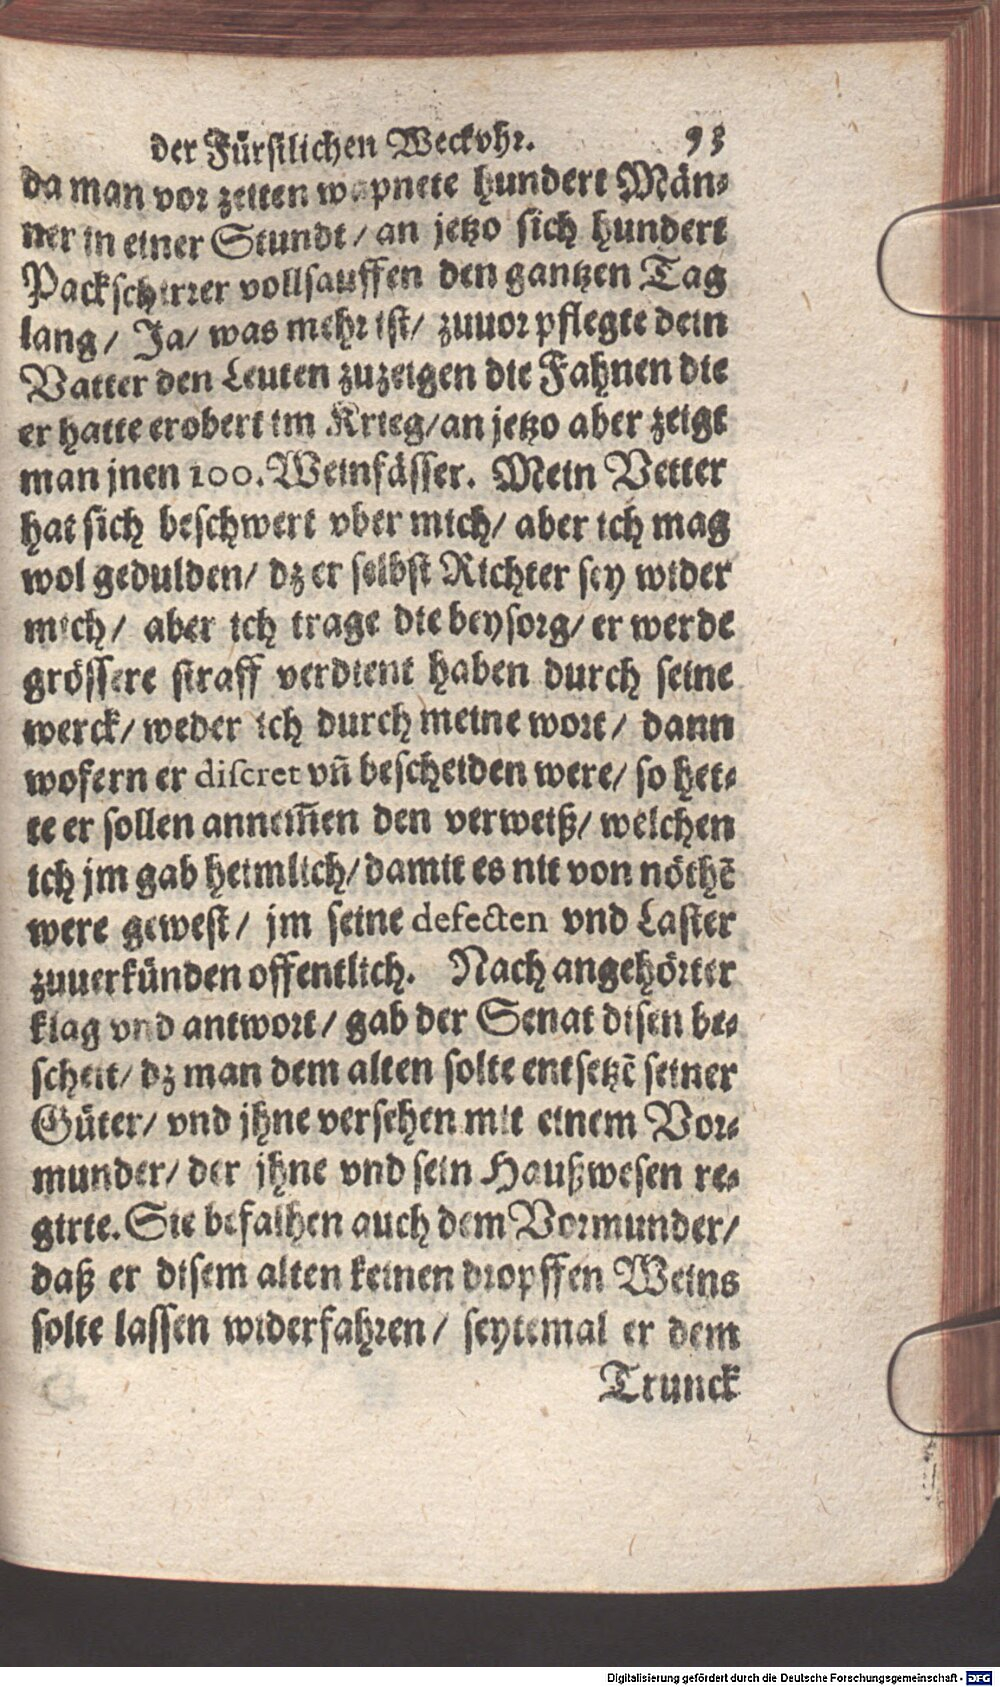 der Fürstlichen Weckvhr. 93
da man vor zeiten wapnete hundert Män-
ner in einer Stundt / an jetzo sich hundert
Packschirrer vollsauffen den gantzen Tag
lang / Ja / was mehr ist / zuuor pflegte dein
Vatter den Leuten zuzeigen die Fahnen die
er hatte erobert im Krieg / an jetzo aber zeigt
man jnen 100. Weinfässer. Mein Vetter
hat sich beschwert vber mich / aber ich mag
wol gedulden / dz er selbst Richter sey wider
mich / aber ich trage die beysorg / er werde
grössere straff verdient haben durch seine
werck / weder ich durch meine wort / dann
wofern er discret vñ bescheiden were / so het-
te er sollen annem̃en den verweiß / welchen
ich jm gab heimlich / damit es nit von nöthẽ
were gewest / jm seine defecten vnd Laster
zuuerkünden offentlich. Nach angehörter
klag vnd antwort / gab der Senat disen be-
scheit / dz man dem alten solte entsetzẽ seiner
Güter / vnd jhne versehen mit einem Vor-
munder / der jhne vnd sein Haußwesen re-
girte. Sie befalhen auch dem Vormunder /
daß er disem alten keinen dropffen Weins
solte lassen widerfahren / seytemal er dem
Trunck
Digitalisierung gefördert durch die Deutsche Forschungsgemeinschaft - DFG